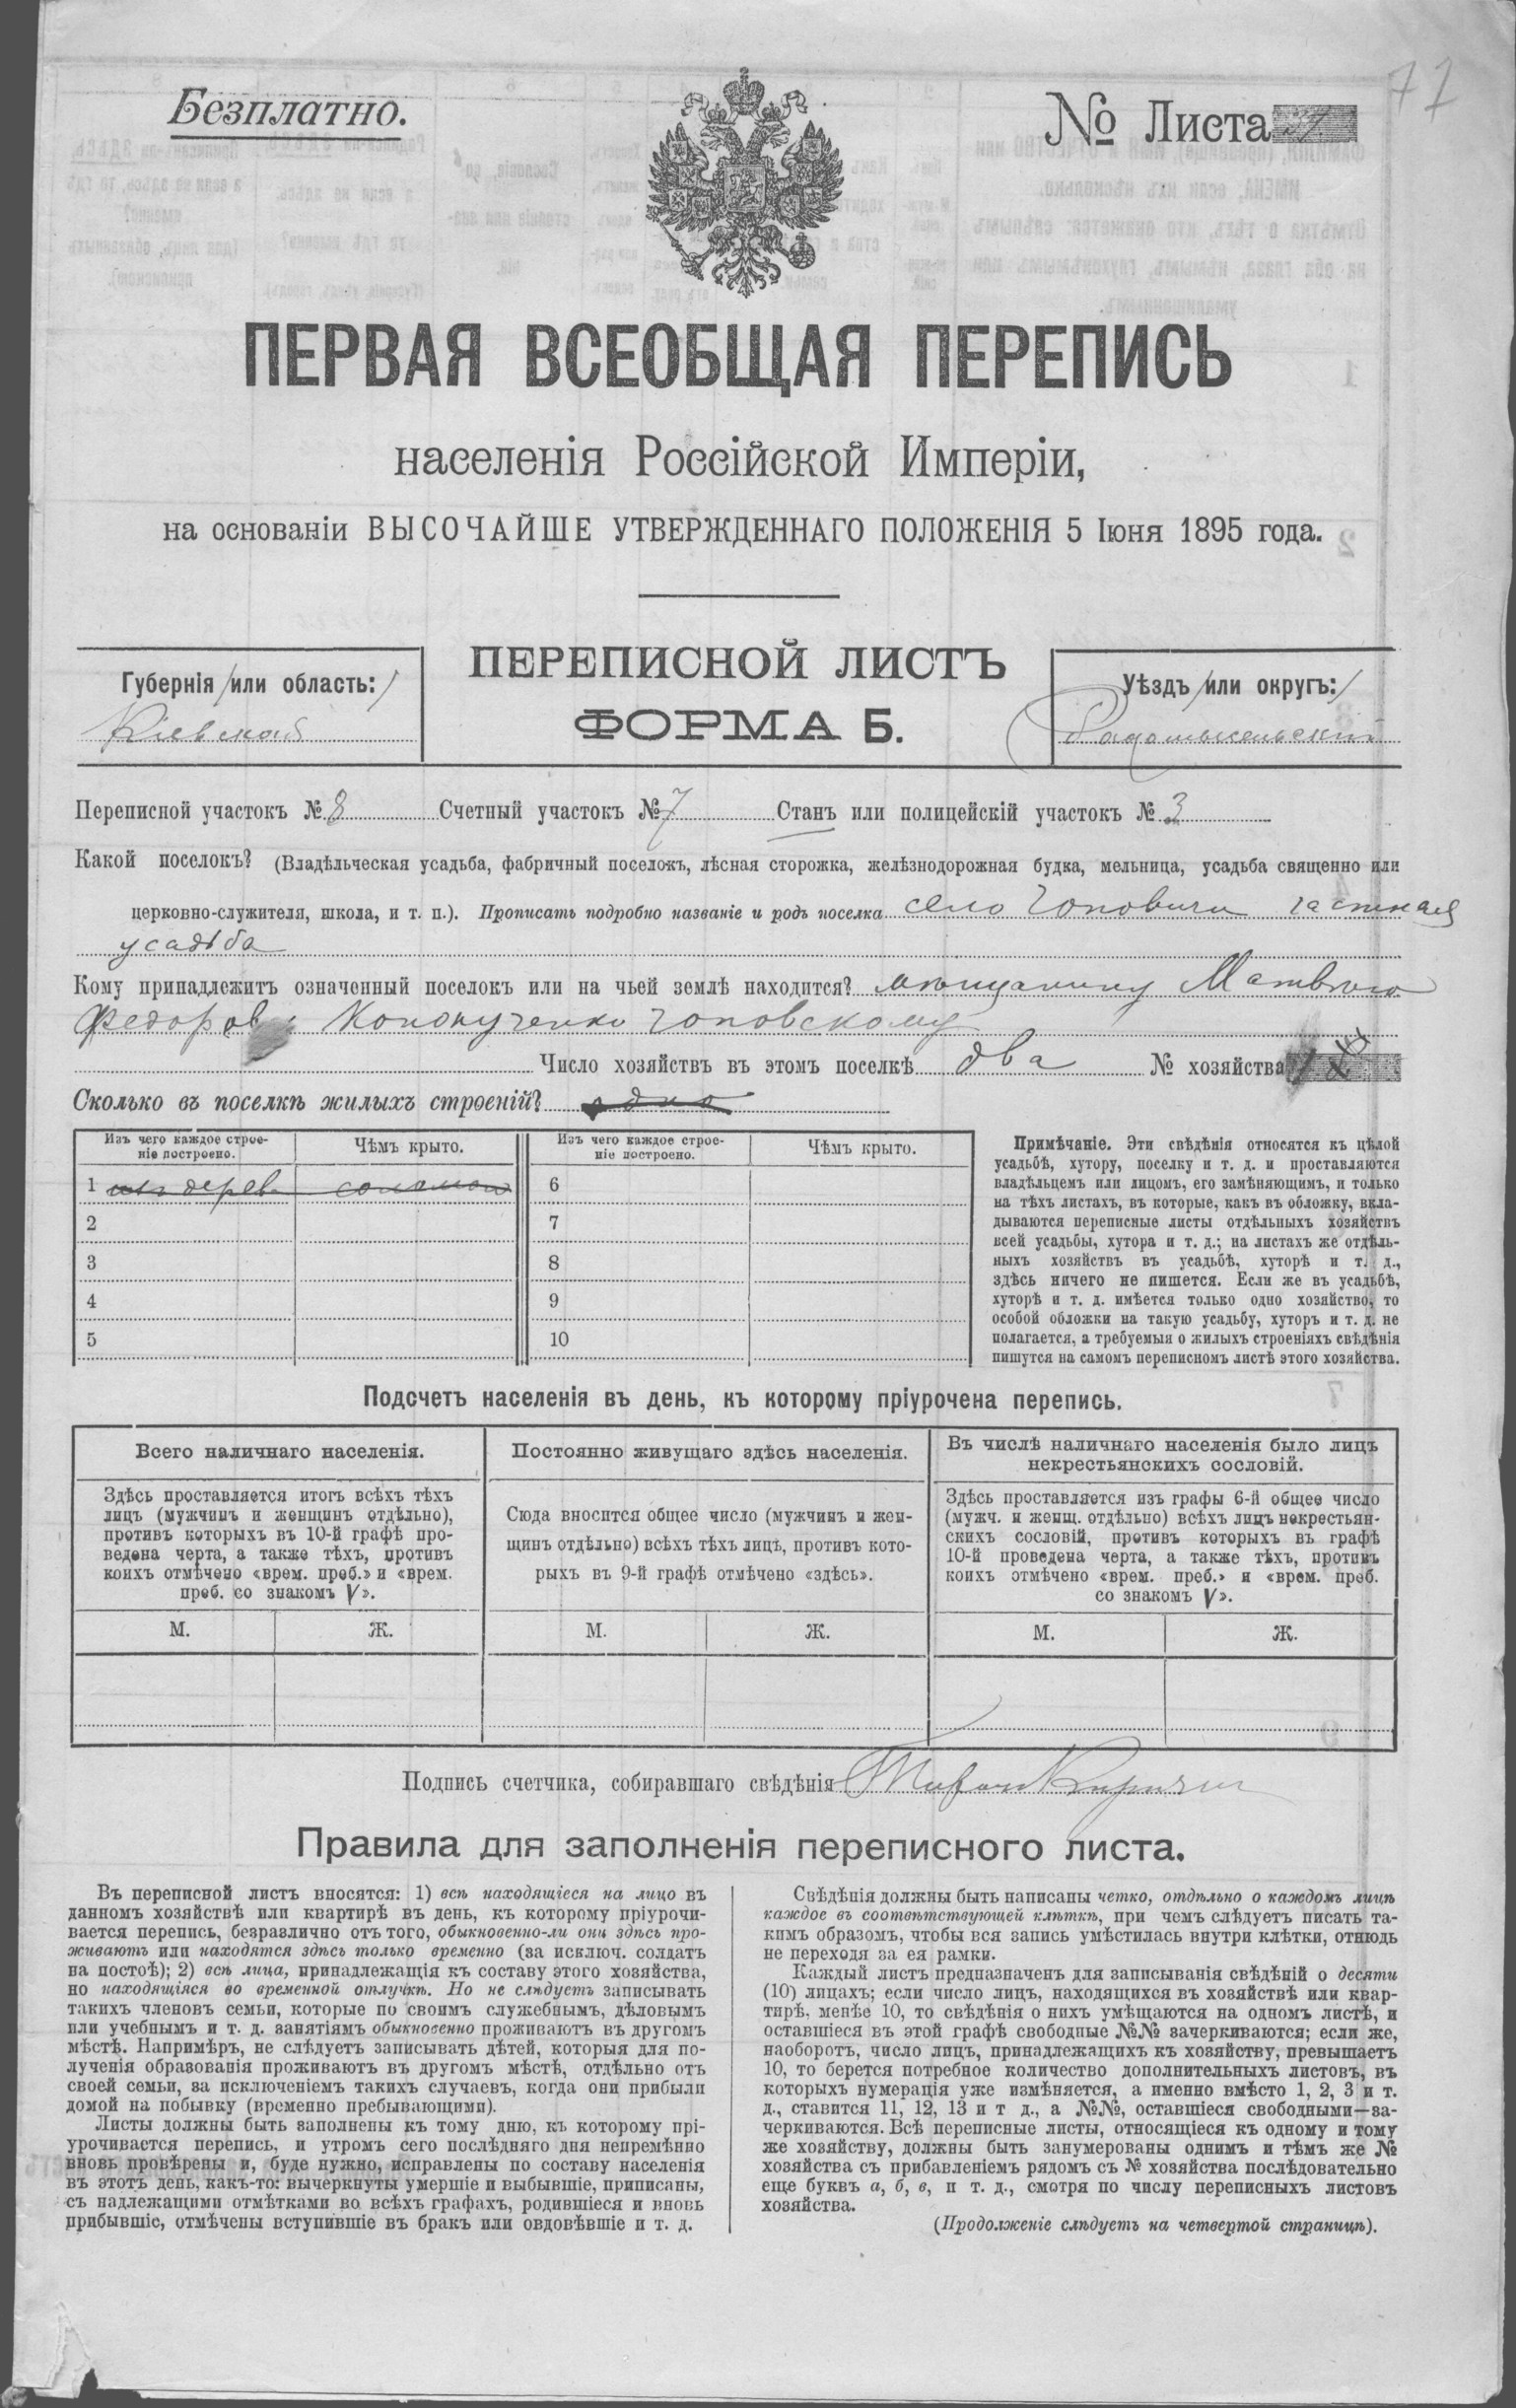 77
Безплатно.
№ Листа
ПЕРВАЯ ВСЕОБЩАЯ ПЕРЕПИСЬ
населенія Россійской Имперіи,
на основаніи ВЫСОЧАЙШЕ УТВЕРЖДЕННАГО ПОЛОЖЕНІЯ 5 Іюня 1895 года.
ПЕРЕПИСНОЙ ЛИСТЪ
ФОРМА Б.
Губернія /или область:/
Кіевская
Уѣздъ /или округъ:/
Радомысльскій
Переписной участокъ № 8 Счетный участокъ № 7 Станъ или полицейскій участокъ № 3
Какой поселокъ? (Владѣльческая усадьба, фабричный поселокъ, лѣсная сторожка, желѣзнодорожная будка, мельница, усадьба священно или
церковно-служителя, школа, и т. п.). Прописать подробно названіе и родъ поселка село Чоповичи частная
усадьба
Кому принадлежитъ означенный поселокъ или на чьей землѣ находится? мѣщанину Матвѣю
Федоров Чоповскому
Число хозяйствъ въ этомъ поселкѣ два № хозяйства
Сколько въ поселкѣ жилыхъ строеній? одно
Изъ чего каждое строе-
ніе построено.
Чѣмъ крыто.
Изъ чего каждое строе-
ніе построено.
Чѣмъ крыто.
1 изъ дерев соломою 6
2 7
3 8
4 9
5 10
Примѣчаніе. Эти свѣдѣнія относятся къ цѣлой
усадьбѣ, хутору, поселку и т. д. и проставляются
владѣльцемъ или лицомъ, его замѣняющимъ, и только
на тѣхъ листахъ, въ которые, какъ въ обложку, вкла-
дываются переписные листы отдѣльныхъ хозяйствъ
всей усадьбы, хутора и т. д.; на листахъ же отдѣль-
ныхъ хозяйствъ въ усадьбѣ, хуторѣ и т. д.,
здѣсь ничего не пишется. Если же въ усадьбѣ,
хуторѣ и т. д. имѣется только одно хозяйство, то
особой обложки на такую усадьбу, хуторъ и т. д. не
полагается, а требуемыя о жилыхъ строеніяхъ свѣдѣнія
пишутся на самомъ переписномъ листѣ этого хозяйства.
Подсчетъ населенія въ день, къ которому пріурочена перепись.
Всего наличнаго населенія.
Здѣсь проставляется итогъ всѣхъ тѣхъ
лицъ (мужчинъ и женщинъ отдѣльно),
противъ которыхъ въ 10-й графѣ про-
ведена черта, а также тѣхъ, противъ
коихъ отмѣчено «врем. преб.» и «врем.
преб. со знакомъ V».
М. Ж.
Постоянно живущаго здѣсь населенія.
Сюда вносится общее число (мужчинъ и жен-
щинъ отдѣльно) всѣхъ тѣхъ лицъ, противъ кото-
рыхъ въ 9-й графѣ отмѣчено «здѣсь».
М. Ж.
Въ числѣ наличнаго населенія было лицъ
некрестьянскихъ сословій.
Здѣсь проставляется изъ графы 6-й общее число
(мужч. и женщ. отдѣльно) всѣхъ лицъ некрестьян-
скихъ сословій, противъ которыхъ въ графѣ
10-й проведена черта, а также тѣхъ, противъ
коихъ отмѣчено «врем. преб.» и «врем. преб.
со знакомъ V».
М. Ж.
Подпись счетчика, собиравшаго свѣдѣнія
Правила для заполненія переписного листа.
Въ переписной листъ вносятся: 1) всѣ находящіеся на лицо въ
данномъ хозяйствѣ или квартирѣ въ день, къ которому пріурочи-
вается перепись, безразлично отъ того, обыкновенно-ли они здѣсь про-
живаютъ или находятся здѣсь только временно (за исключ. солдатъ
на постоѣ); 2) всѣ лица, принадлежащія къ составу этого хозяйства,
но находящіяся во временной отлучкѣ. Но не слѣдуетъ записывать
такихъ членовъ семьи, которые по своимъ служебнымъ, дѣловымъ
или учебнымъ и т. д. занятіямъ обыкновенно проживаютъ въ другомъ
мѣстѣ. Напримѣръ, не слѣдуетъ записывать дѣтей, которыя для по-
лученія образованія проживаютъ въ другомъ мѣстѣ, отдѣльно отъ
своей семьи, за исключеніемъ такихъ случаевъ, когда они прибыли
домой на побывку (временно пребывающими).
Листы должны быть заполнены къ тому дню, къ которому прі-
урочивается перепись, и утромъ сего послѣдняго дня непремѣнно
вновь провѣрены и, буде нужно, исправлены по составу населенія
въ этотъ день, какъ-то: вычеркнуты умершіе и выбывшіе, приписаны,
съ надлежащими отмѣтками во всѣхъ графахъ, родившіеся и вновь
прибывшіе, отмѣчены вступившіе въ бракъ или овдовѣвшіе и т. д.
Свѣдѣнія должны быть написаны четко, отдѣльно о каждомъ лицѣ
каждое въ соотвѣтствующей клѣткѣ, при чемъ слѣдуетъ писать та-
кимъ образомъ, чтобы вся запись умѣстилась внутри клѣтки, отнюдь
не переходя за ея рамки.
Каждый листъ предназначенъ для записыванія свѣдѣній о десяти
(10) лицахъ; если число лицъ, находящихся въ хозяйствѣ или квар-
тирѣ, менѣе 10, то свѣдѣнія о нихъ умѣщаются на одномъ листѣ, и
оставшіеся въ этой графѣ свободные №№ зачеркиваются; если же,
наоборотъ, число лицъ, принадлежащихъ къ хозяйству, превышаетъ
10, то берется потребное количество дополнительныхъ листовъ, въ
которыхъ нумерація уже измѣняется, а именно вмѣсто 1, 2, 3 и т.
д., ставится 11, 12, 13 и т д., а №№, оставшіеся свободными—за-
черкиваются. Всѣ переписные листы, относящіеся къ одному и тому
же хозяйству, должны быть занумерованы однимъ и тѣмъ же №
хозяйства съ прибавленіемъ рядомъ съ № хозяйства послѣдовательно
еще буквъ а, б, в, и т. д., смотря по числу переписныхъ листовъ
хозяйства.
(Продолженіе слѣдуетъ на четвертой страницѣ).